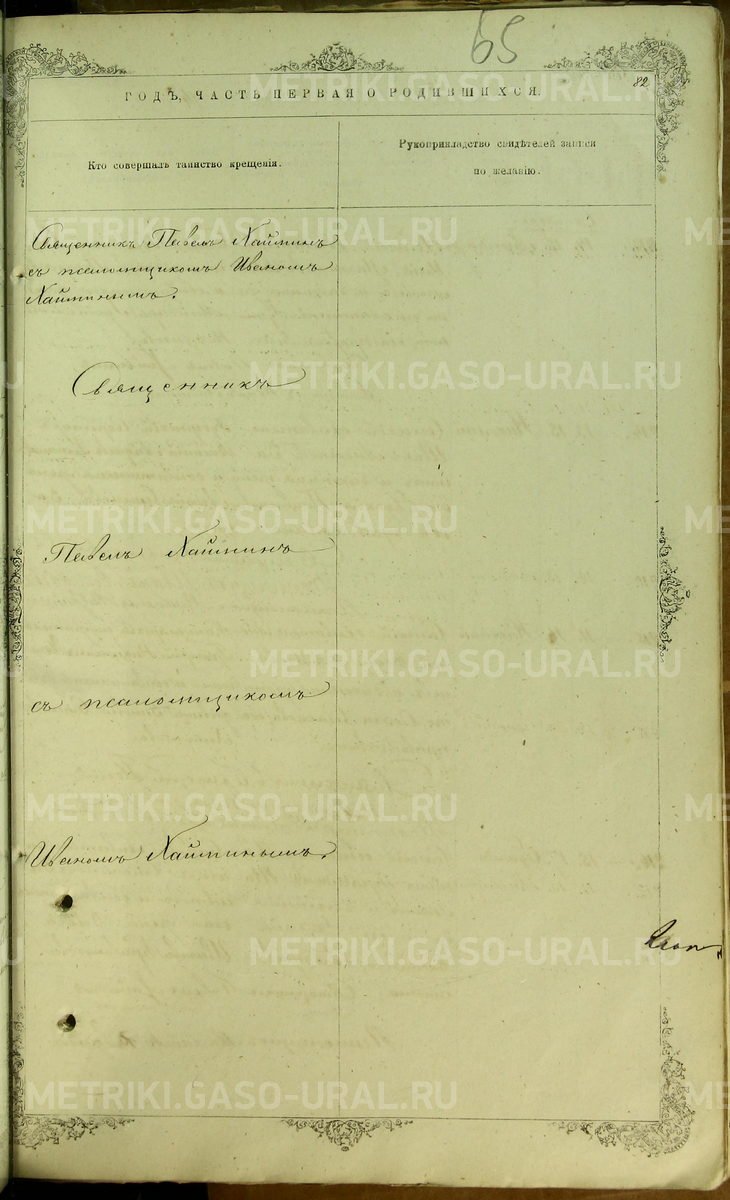 65
82
ГОДЪ, ЧАСТЬ ПЕРВАЯ О РОДИВШИХСЯ.
Кто совершалъ таинство крещенія.
Рукоприкладство свидѣтелей записи
по желанію.
Священникъ Павелъ Хайминъ
съ псаломщикомъ Иваномъ
Хайминымъ.
Священникъ
Павелъ Хайминъ
съ псаломщикомъ
Иваномъ Хайминымъ.
METRIKI.GASO-URAL.RU
METRIKI.GASO-URAL.RU
METRIKI.GASO-URAL.RU
METRIKI.GASO-URAL.RU
METRIKI.GASO-URAL.RU
METRIKI.GASO-URAL.RU
METRIKI.GASO-URAL.RU
METRIKI.GASO-URAL.RU